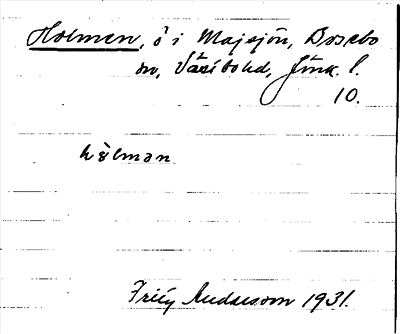 Holmen, ö i Majsjön, Bosebo
sn, Västbo hd, Jönk. l.
10.
hòlman
Fritz Andersson 1931.